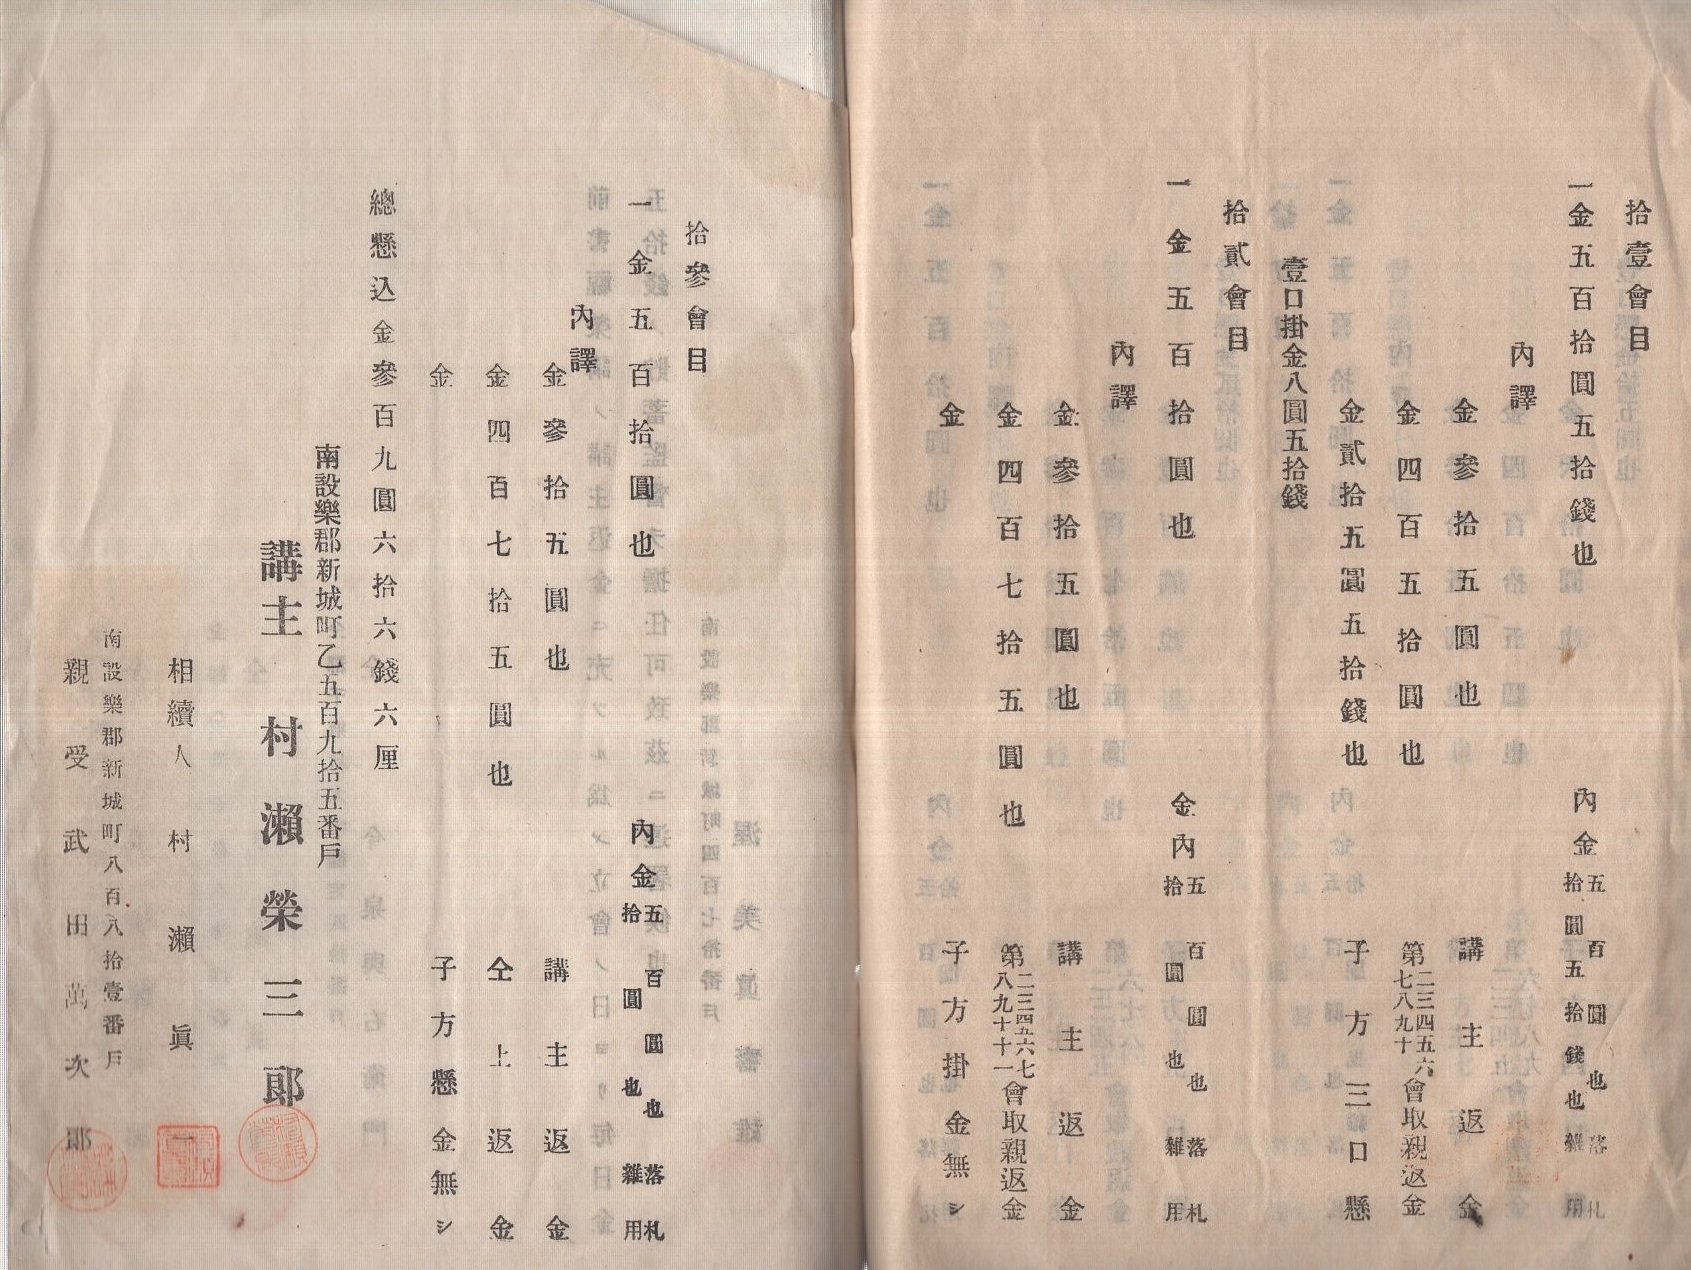 拾壹會目
一金五百拾圓五拾錢也
內金五百圓也落札
拾圓五拾錢也雜用
內譯
金參拾五圓也 講主返金
金四百五拾圓也 第二三四五六七八九十會取親返金
金貳拾五圓五拾錢也 子方三口懸
壹口掛金八圓五拾錢
拾貳會目
一金五百拾圓也
金內五百圓也落札
拾圓也雜用
內譯
金參拾五圓也 講主返金
金四百七拾五圓也 第二三四五六七八九十十一會取親返金
金 子方掛金無シ
拾參會目
一金五百拾圓也
內金五百圓也落札
拾圓也雜用
內譯
金參拾五圓也 講主返金
金四百七拾五圓也 仝上返金
金 子方懸金無シ
總懸込金參百九圓六拾六錢六厘
南設樂郡新城町乙五百九拾五番戶
講主 村瀨榮三郎
相續人 村瀨眞一
南設樂郡新城町八百八拾壹番戶
親受 武田萬次郎